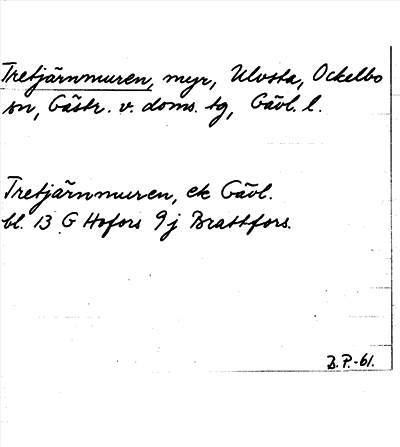 Tretjärnmuren, myr, Ulvsta, Ockelbo
sn, Gästr. v. doms. tg, Gävl. l.
Tretjärnmuren, ek Gävl.
bl. 13 G Hofors 9j Brattfors.
B.P.-61.